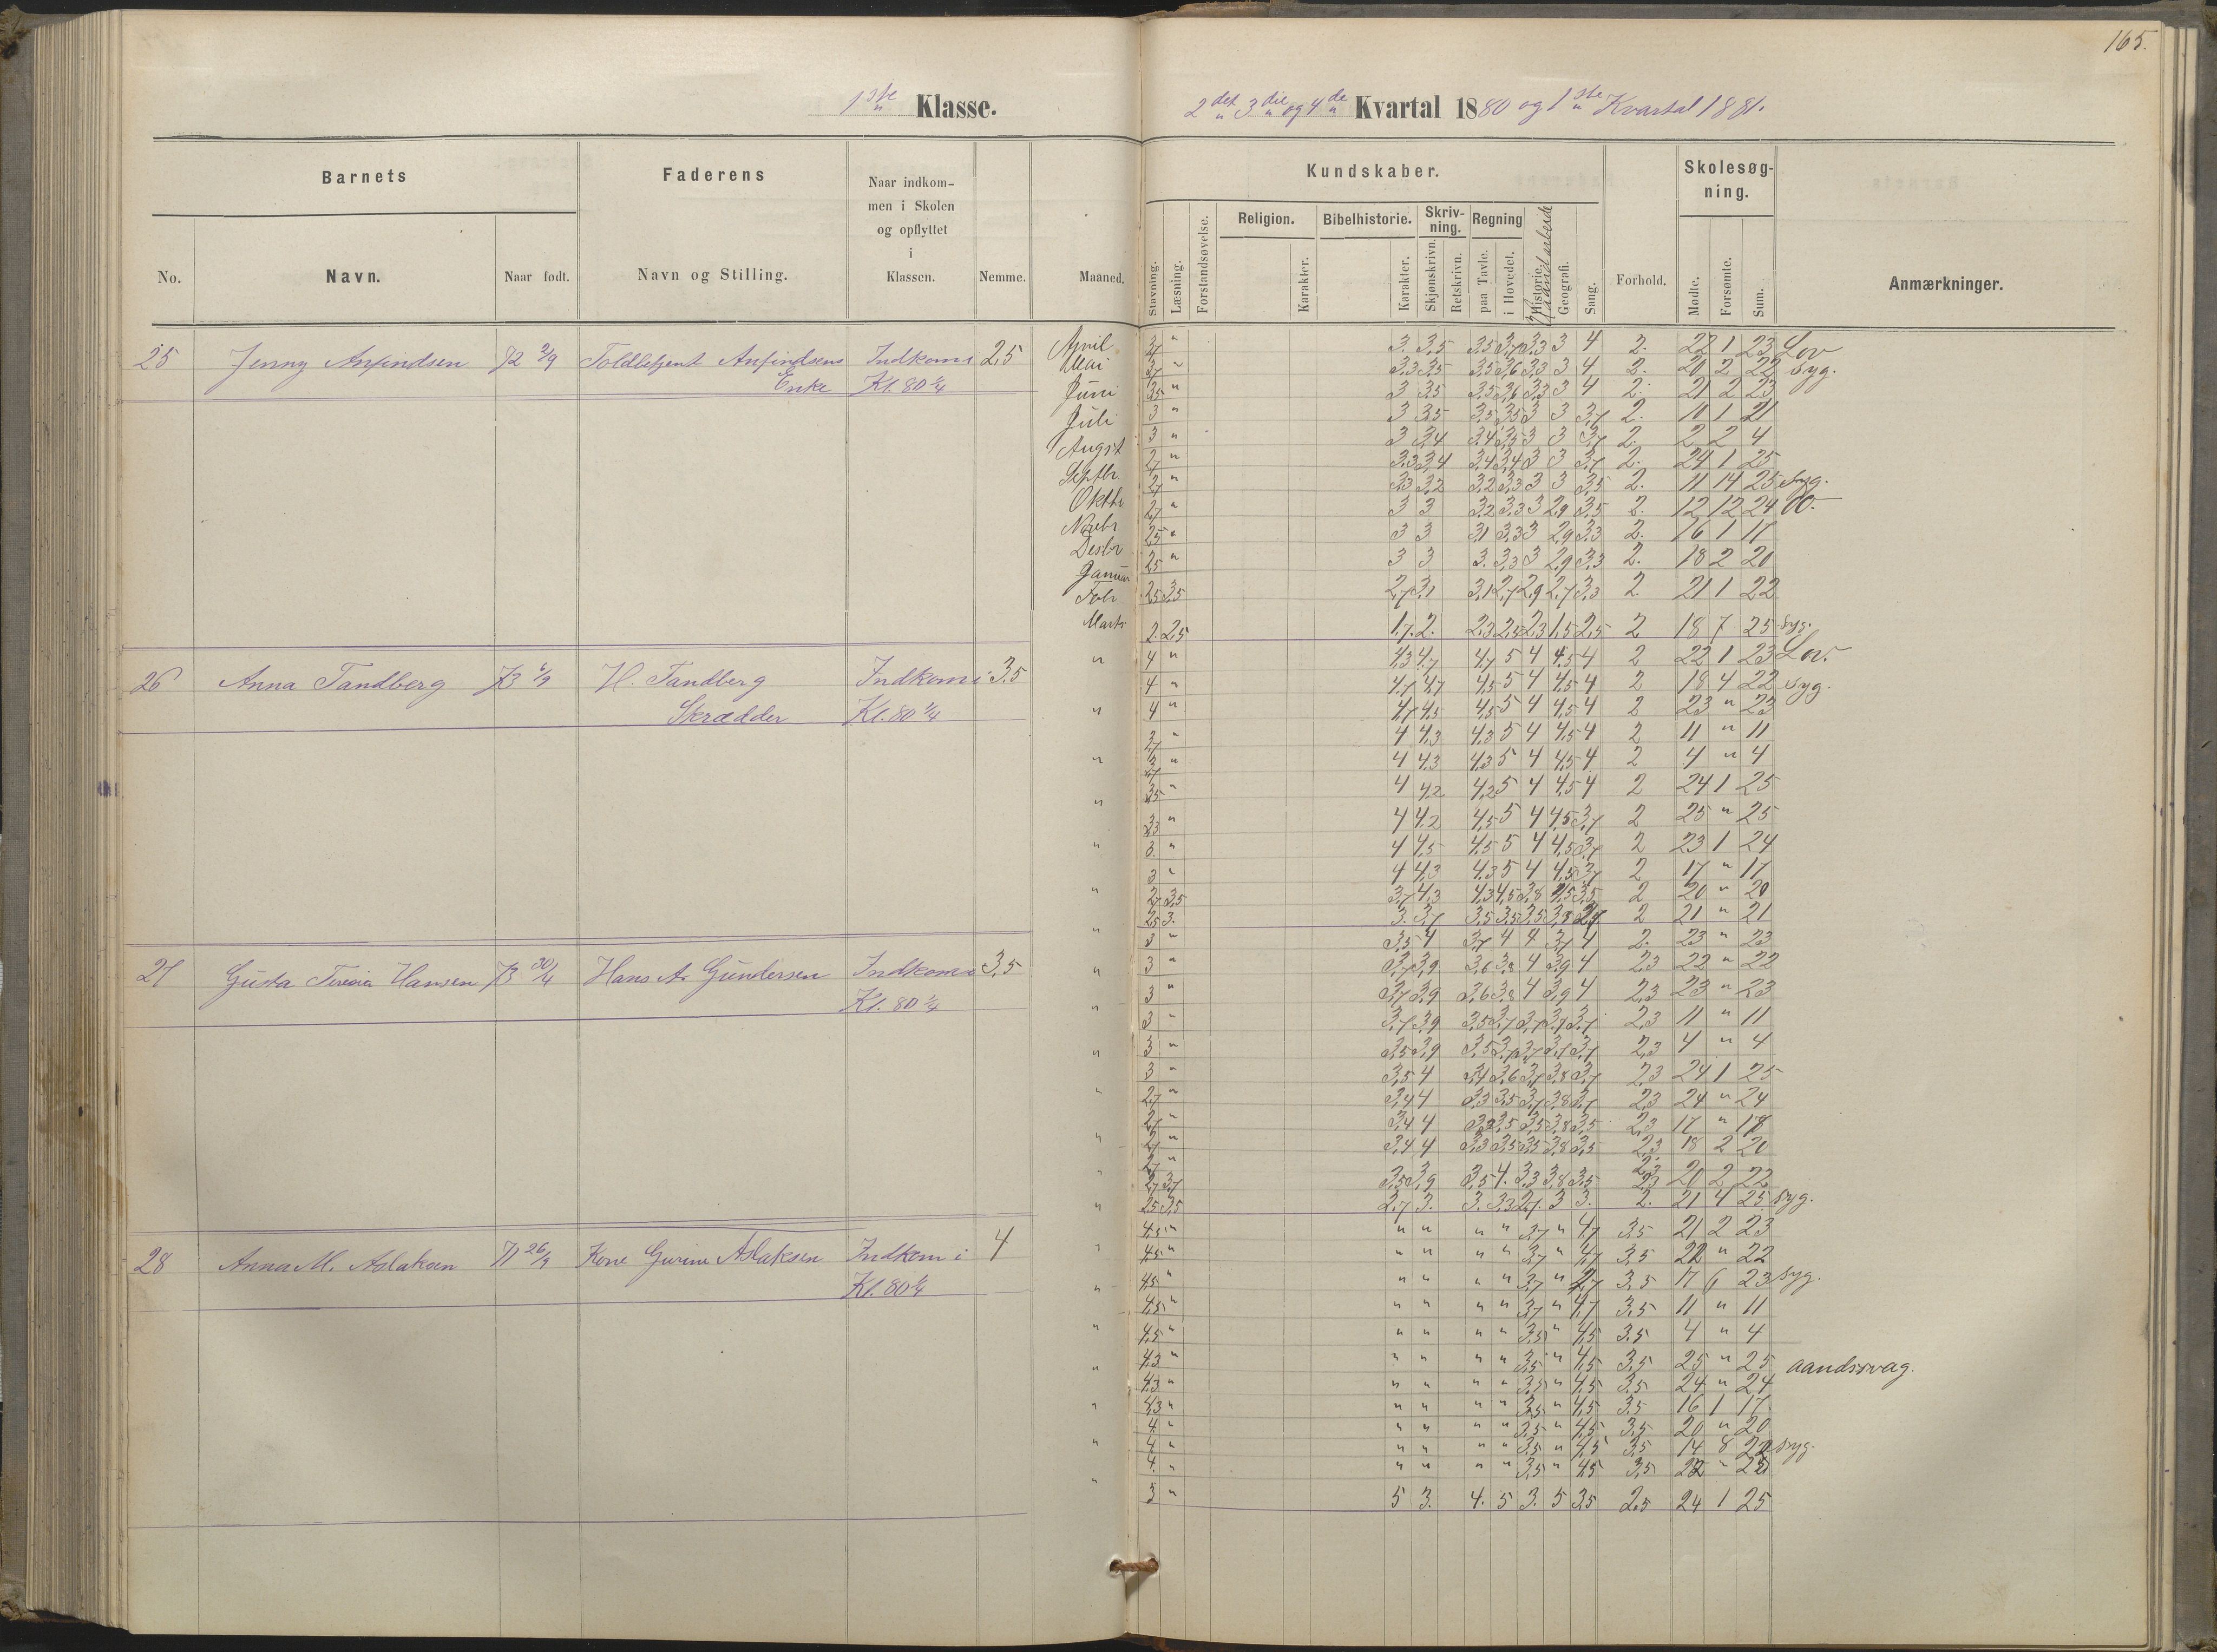 165.
1ste Klasse.
2det 3die og 4de Kvartal 1880 og 1ste Kvartal 1881.
Barnets
Faderens
Naar indkom-
men i Skolen
og opflyttet
i
Klassen.
Nemme.
Maaned.
No.
Navn.
Naar født.
Navn og Stilling.
Kundskaber.
Stavning.
Læsning.
Forstandsøvelse.
Religion.
Karakter.
Bibelhistorie.
Karakter.
Skriv-
ning.
Skjønskrivn.
Retskrivn.
Regning
paa Tavle.
i Hovedet.
Historie.
Haandarbeide
Geografi.
Sang.
Forhold.
Skolesøg-
ning.
Mødte.
Forsømte.
Sum.
Anmærkninger.
25 Jenny Anfindsen 72 2/9 Toldbetjent Anfindsens Indkom i 2,5
Enke Kl. 80 1/4
April 3. 3,5 3,5 3,7 3,3 3 4 2. 22 1 23 Lov
Mai 3,3 3,5 3,5 3,6 3,3 3 4 2. 20 2 22 Syg.
Juni 3,5 " 3 3,5 3,5 3,6 3,3 3 4 2. 21 2 23
Juli 3 " 3 3,5 3,5 3,5 3 3 3,7 2. 10 1
Augst 3 " 3 3,4 3,4 3,5 3 3 3,7 2. 2 2 4
Septbr 2,7 " 3,3 3,4 3,4 3,4 3 3 3,7 2. 24 1 25
Oktbr 2,7 " 3,3 3,2 3,2 3,3 3 3 3,5 2. 11 14 25 Syg.
Novbr 2,7 " 3 3 3,2 3,3 3 2,9 3,5 2. 12 12 24
Desbr 2,5 " 3 3 3,1 3,3 3 2,9 3,3 2. 16 1 17
Januar 2,5 " 3 3 3. 3,3 3 2,9 3,3 2. 18 2 20
Febr. 2,5 3,5 2,7 3,1 3,1 2,7 2,9 2,7 3,3 2. 21 1 22
Marts 2. 2,5 1,7 2. 2,3 2,5 2,3 1,5 2,5 2 18 7 25 Syg.
26 Anna Tandberg 73 6/9 H. Tandberg Indkom i 3,5
Skrædder Kl. 80 1/4
4 " 4,3 4,7 4,7 5 4 4,5 4 2 22 1 23 Lov.
4 " 4,7 4,7 4,5 5 4 4,5 4 2 18 4 22 Syg.
4 " 4,7 4,5 4,5 5 4 4,5 4 2 23 " 23
3,7 " 4 4,3 4,3 5 4 4,5 4 2 11 " 11
3,7 " 4 4,3 4,3 5 4 4,5 4 2 4 " 4
3,5 " 4 4,2 4,2 5 4 4,5 4 2 24 1 25
3,3 " 4 4,2 4,5 5 4 4,5 3,7 2 25 " 25
3. " 4 4,5 4,5 5 4 4,5 3,7 2 23 1 24
3 " 4 4,3 4,3 5 4 4,5 3,7 2 17 " 17
2,7 3,5 3,7 4,3 4,3 4,5 3,8 4,5 3,5 2 20 " 20
2,5 3. 3. 3,7 3,5 3,5 3,5 3,8 2,7 2 21 " 21
27 Gusta Hansen 73 30/4 Hans A. Gundersen Indkom i 3,5
Kl. 80 1/4
3 " 3,5 4 3,7 4 4 3,7 4 2. 23 " 23
3 " 3,7 3,9 3,6 3,8 4 3,9 4 2,3 22 " 22
3 " 3,7 3,9 3,6 3,8 4 3,9 4 2,3 23 " 23
3 " 3,7 3,9 3,5 3,7 3,7 3,7 3,7 2,3 11 " 11
3 " 3,5 3,9 3,5 3,7 3,7 3,7 3,7 2,3 4 " 4
3 " 3,5 4 3,4 3,6 3,7 3,8 3,7 2,3 24 1 25
2,7 " 3,4 4 3,3 3,5 3,7 3,8 3,7 2,3 24 " 24
2,7 " 3,4 4 3,3 3,5 3,5 3,8 3,5 2,3 17 "
2,7 " 3,4 4 3,3 3,5 3,5 3,8 3,5 2,3 18 2 20
2,7 "
2,7 3,7 3,5 3,9 3,5 4. 3,3 3,8 3,5 2,3 20 2 22
2,5 3,5 2,7 3. 3. 3,3 2,7 3 3. 2. 21 4 25 Syg.
28 Anna M. Aslaksen 71 26/9 Kone Gurine Aslaksen Indkom i 4
Kl. 80 1/4
4,5 " " " " " 3,7 " 4,7 3,5 21 2 23
4,5 " " " " " 3,7 " 4,7 3,5 22 " 22
4,5 " " " " " 3,7 " 4,7 3,5 17 6 23 Syg.
4,5 " " " " " 3,7 " 4,7 3,5 11 " 11
4,5 " " " " " 3,5 " 4,5 3,5 4 " 4
4,3 " " " " " 3,5 " 4,5 3,5 25 " 25 aandssvag.
4,3 " " " " " 3,5 " 4,5 3,5 24 " 24
4,3 " " " " " 3,5 " 4,5 3,5 16 1 17
4 " " " " " 3,5 " 4,5 3,5 20 " 20
4 " " " " " 3,5 " 4,5 3,5 14 8 22 Syg.
4. " " " " " 3,5 " 4,5 3,5 22 "
3 " 5 3. 4. 5 3. 5 3,5 2,5 24 1 25